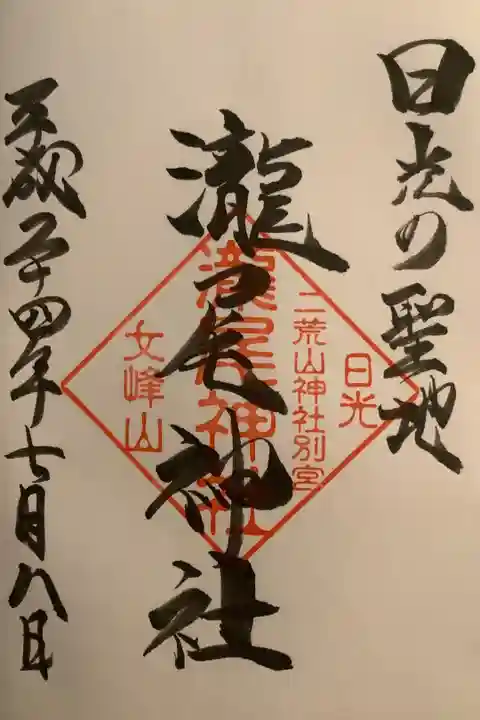 日光の聖地
瀧尾神社
平成二十四年七月八日
日光
二荒山神社別宮
瀧尾神社
女峰山